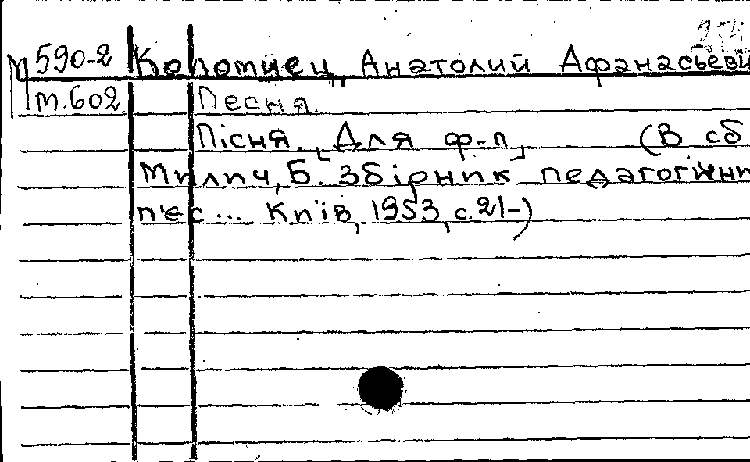 М 590-2 Коломиец, Анатолий Афанасьеви
т.602 Песня.
Пісня. [Для ф-п] (В сб
Милич, Б. Збірник педагогічни
п'єс... Київ, 1953, с.21-)